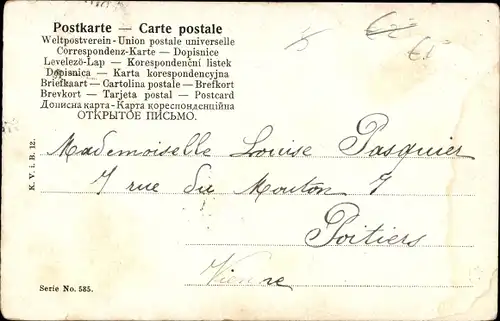 Postkarte — Carte postale
Weltpostverein - Union postale universelle
Correspondenz-Karte — Dopisnice
Levelező-Lap — Korespondenční listek
Dopisnica — Karta korespondencyjna
Briefkaart — Cartolina postale — Brefkort
Brevkort — Tarjeta postal — Postcard
Дописна карта - Карта кореспонденційна
ОТКРЫТОЕ ПИСЬМО.
Mademoiselle Louise Pasquier
7 rue du Mouton 7
Poitiers
Vienne
K. V. i. B. 12.
Serie No. 585.